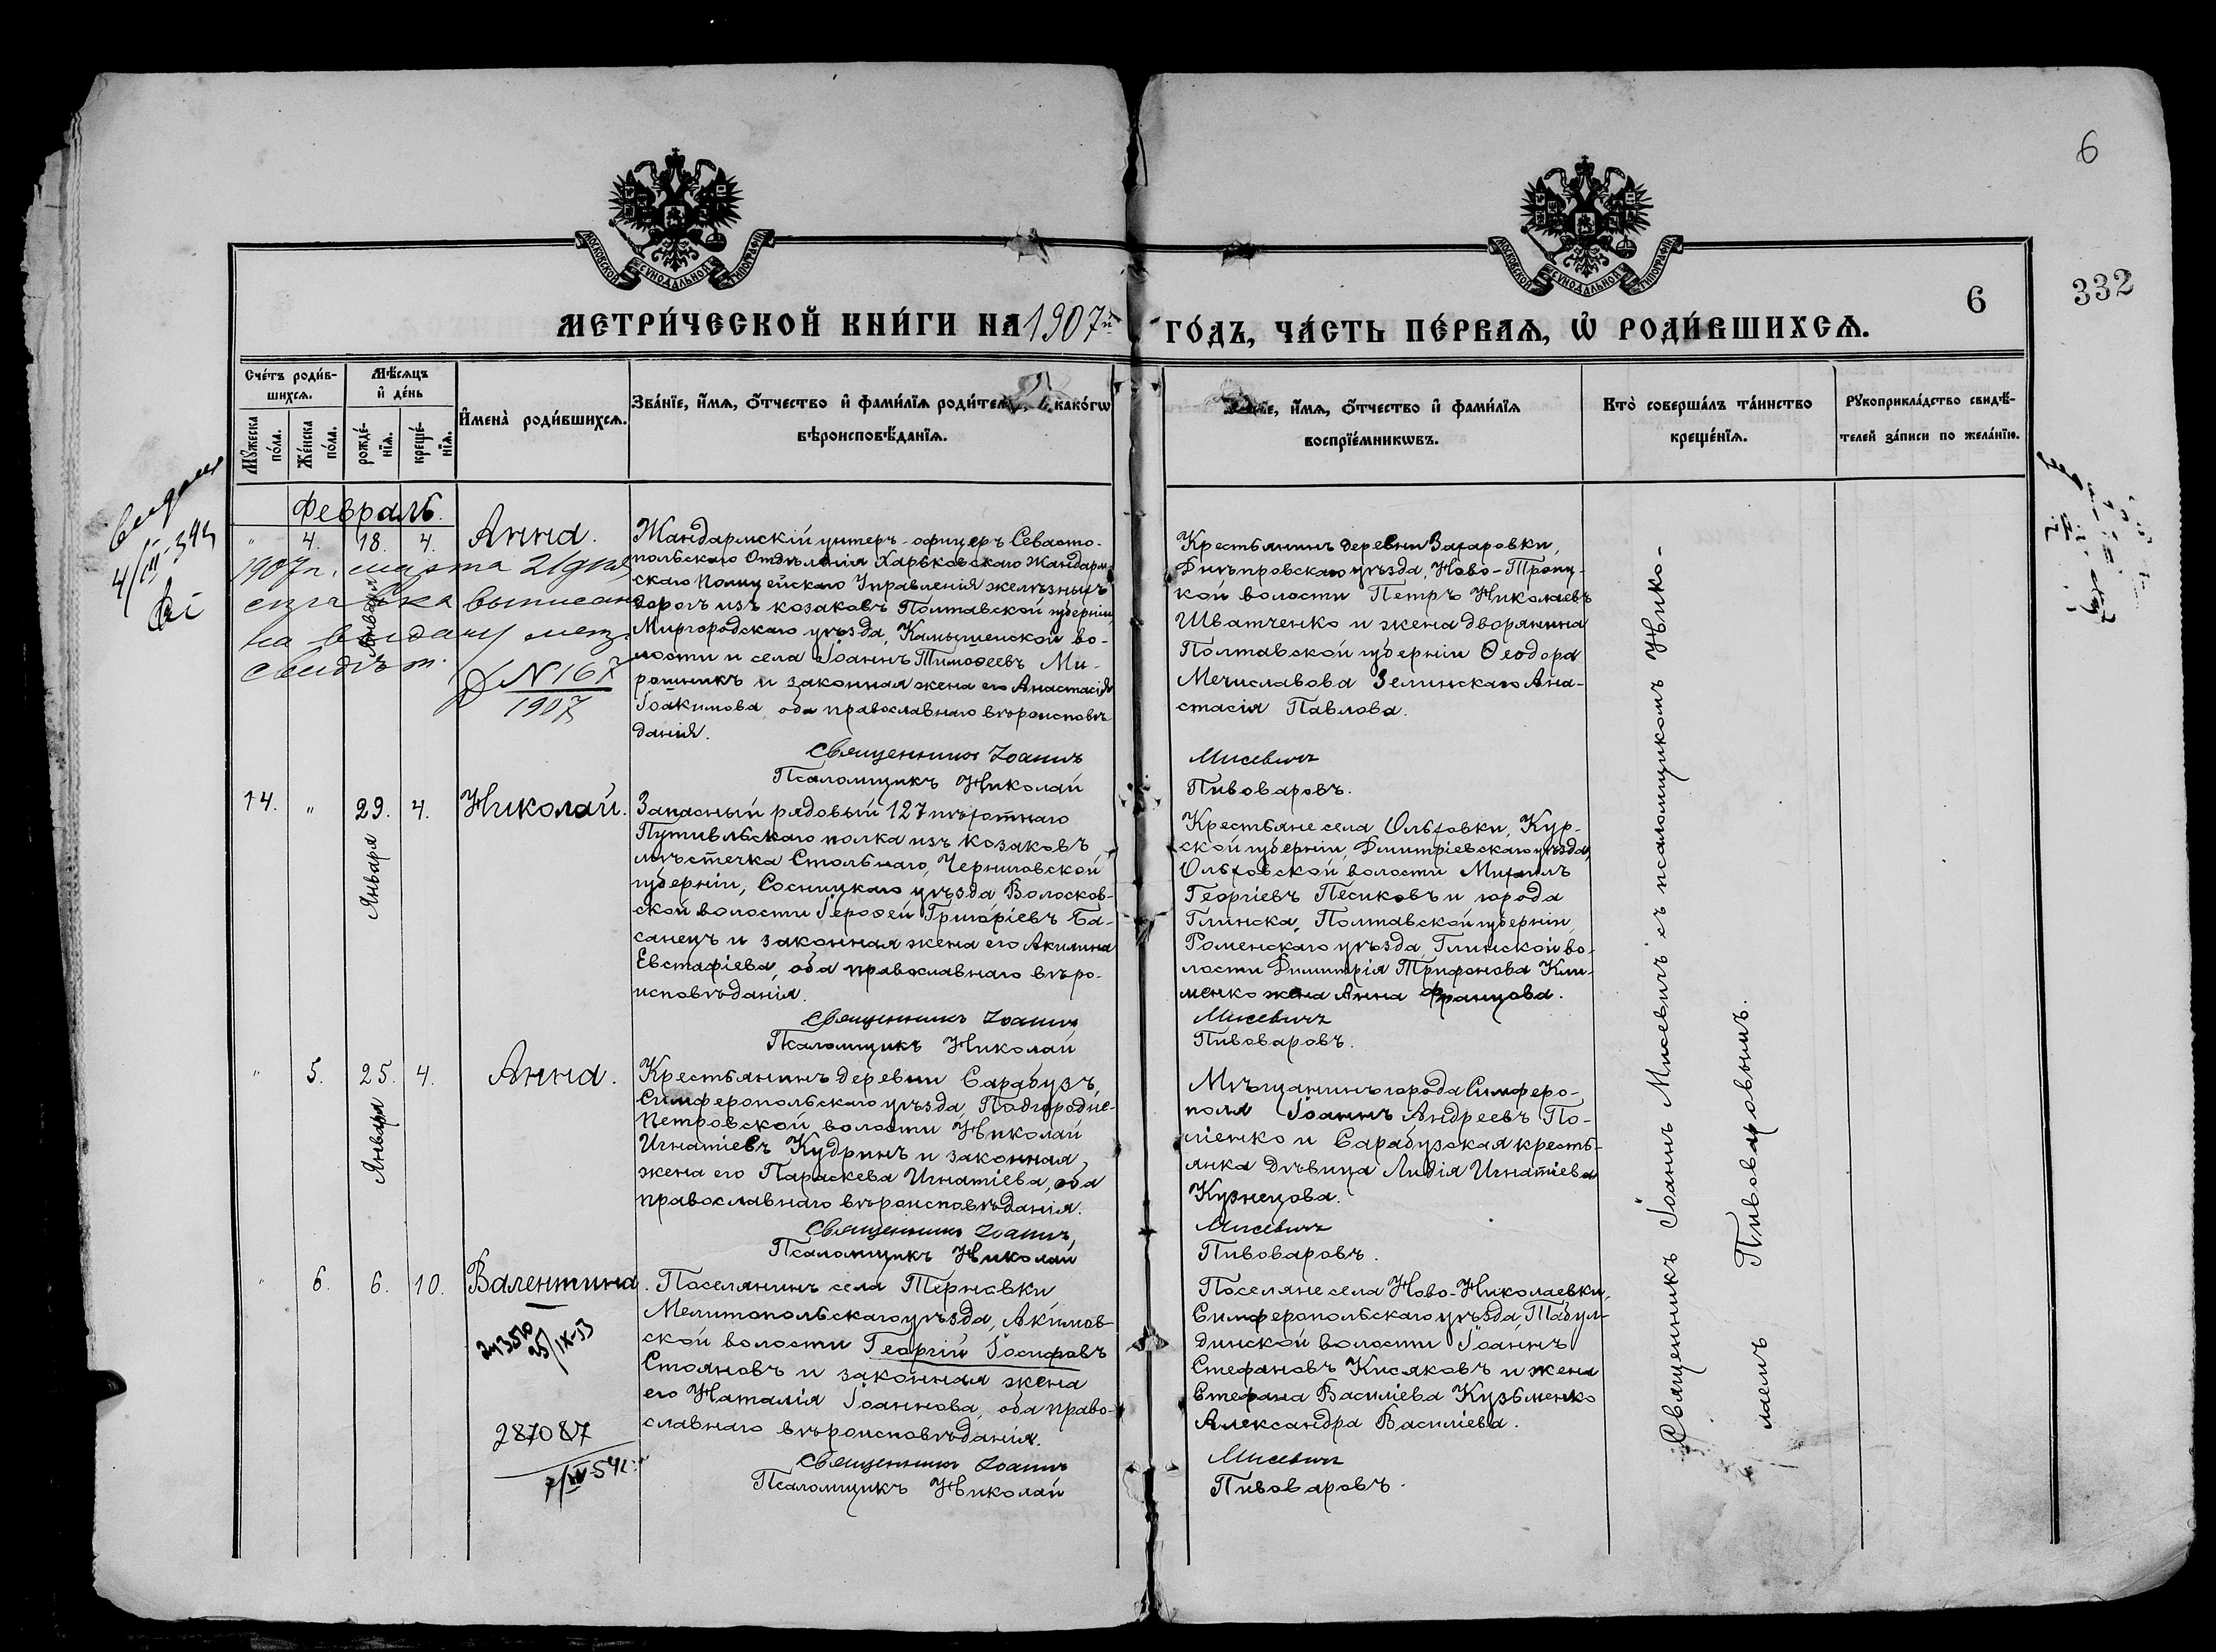 6
332
МОСКОВСКОЙ СУНОДАЛЬНОЙ ТИПОГРАФІИ
МОСКОВСКОЙ СУНОДАЛЬНОЙ ТИПОГРАФІИ
6
МЕТРИ́ЧЕСКОЙ КНИ́ГИ НА 1907й ГО́ДЪ, ЧА́СТЬ ПЕ́РВАѦ, Ѡ҆ РОДИ́ВШИХСѦ.
Сче́тъ роди́в-
шихсѧ.
Мꙋ́жеска
по́ла.
Же́нска
по́ла.
Мѣ́сѧцъ
и҆ де́нь
рожде́-
нїѧ.
креще́-
нїѧ.
И҆мена̀ роди́вшихсѧ.
Зва́нїе, и҆́мѧ, ѻ҆́тчество и҆ фами́лїѧ роди́тел како́гѡ
вѣроисповѣ́данїѧ.
и҆́мѧ, ѻ҆́тчество и҆ фами́лїѧ
воспрїе́мникѡвъ.
Кто̀ соверша́лъ та́инство
креще́нїѧ.
Рꙋкоприкла́дство свидѣ́-
телей за́писи по жела́нїю.
Февраль.
" 4. 18. 4. Анна.
Января
1907 г. марта 21 дня
справка выписана
на выдачу метр.
свидѣт.
N 167
1907
Жандармскій унтеръ-офицеръ Севасто-
польскаго Отдѣленія Харьковскаго Жандарм-
скаго Полицейскаго Управленія желѣзныхъ
дорогъ изъ козаковъ Полтавской губерніи,
Миргородскаго уѣзда, Камышенской во-
лости и села Іоаннъ Тимоѳеевъ Ми-
рошникъ и законная жена его Анастасія
Іоакимова, оба православнаго вѣроисповѣ-
данія.
Священникъ Іоаннъ
Псаломщикъ Николай
Крестьянинъ деревни Захаровки,
Днѣпровскаго уѣзда, Ново-Троиц-
кой волости Петръ Николаевъ
Иватченко и жена дворянина
Полтавской губерніи Ѳеодора
Мечиславова Зелинскаго Ана-
стасія Павлова.
Мисевичъ
Пивоваровъ.
14. " 29. 4. Николай.
Января
Запасный рядовый 127 пѣхотнаго
Путивльскаго полка изъ козаковъ
мѣстечка Стольнаго, Черниговской
губерніи, Сосницкаго уѣзда Волосков-
ской волости Іероѳей Григоріевъ Ба-
санецъ и законная жена его Акилина
Евстафіева, оба православнаго вѣро-
исповѣданія.
Священникъ Іоаннъ
Псаломщикъ Николай
Крестьяне села Ольховки, Кур-
ской губерніи, Димитріевскаго уѣзда,
Ольховской волости Михаилъ
Георгіевъ Песиковъ и города
Глинска, Полтавской губерніи,
Роменскаго уѣзда, Глинской во-
лости Димитрія Трифонова Кли-
менко жена Анна Францова.
Мисевичъ
Пивоваровъ.
" 5. 25. 4. Анна.
Января
Крестьянинъ деревни Сарабузъ,
Симферопольскаго уѣзда, Подгородне-
Петровской волости Николай
Игнатіевъ Кудринъ и законная
жена его Параскева Игнатіева, оба
православнаго вѣроисповѣданія.
Священникъ Іоаннъ,
Псаломщикъ Николай
Мѣщанинъ города Симферо-
поля Іоаннъ Андреевъ По-
ліенко и Сарабузская кресть-
янка дѣвица Лидія Игнатіева
Кузнецова.
Мисевичъ
Пивоваровъ.
" 6. 6. 10. Валентина.
25/IX-53
287087
Поселянинъ села Терновки
Мелитопольскаго уѣзда, Акимов-
ской волости Георгій Іосифовъ
Стояновъ и законная жена
его Наталія Іоаннова, оба право-
славнаго вѣроисповѣданія.
Священникъ Іоаннъ
Псаломщикъ Николай
Поселяне села Ново-Николаевки,
Симферопольскаго уѣзда, Табул-
динской волости Іоаннъ
Стефановъ Кисяковъ и жена
Стефана Василіева Кузьменко
Александра Василіева.
Мисевичъ
Пивоваровъ.
Священникъ Іоаннъ Мисевичъ съ псаломщикомъ Нико-
лаемъ Пивоваровымъ.